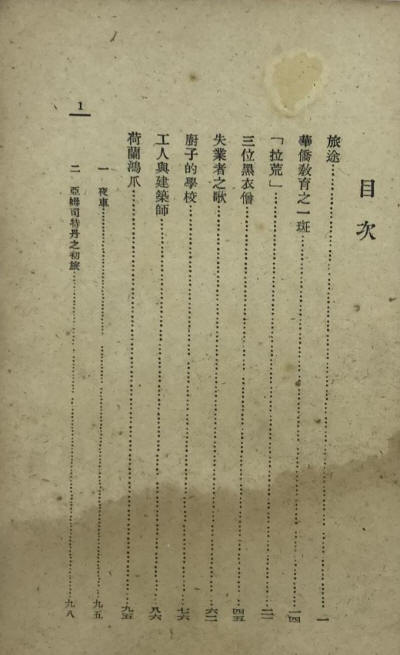 目次
旅途……一
華僑教育之一斑……一四
「拉荒」……二一
三位黑衣僧……四五
失業者之歌……六二
廚子的學校……七六
工人與建築師……八六
荷蘭鴻爪……九五
一 夜車……九五
二 亞姆司特丹之初旅……九八
1